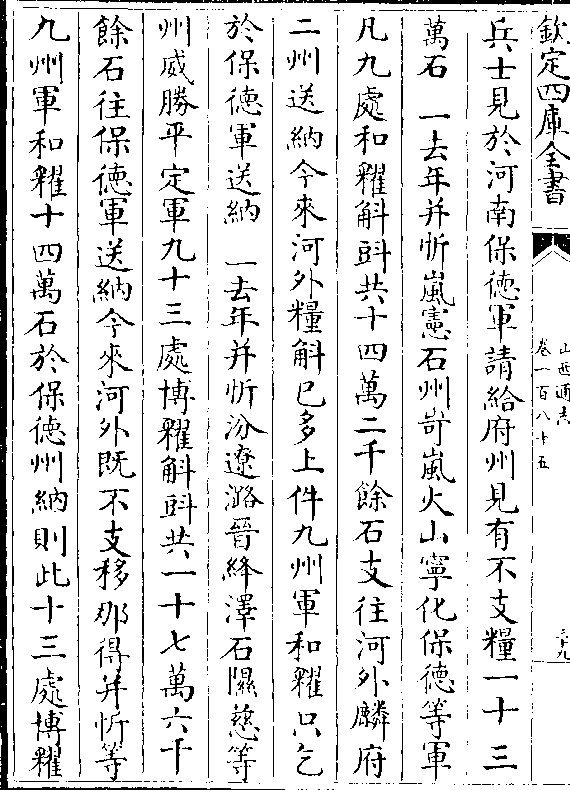 欽定四庫全書
山西通志
卷一百八十五
三十九
兵士見於河南保徳軍請給府州見有不支糧一十三
萬石　一去年并忻嵐憲石州岢嵐火山寧化保徳等軍
凡九處和糴斛㪷共十四萬二千餘石支往河外麟府
二州送納今來河外糧斛已多上件九州軍和糴只乞
於保徳軍送納　一去年并忻汾遼潞晉絳澤石隰慈等
州威勝平定軍九十三處博糴斛㪷共一十七萬六千
餘石往保徳軍送納今來河外既不支移那得并忻等
九州軍和糴十四萬石於保徳州納則此十三處博糴